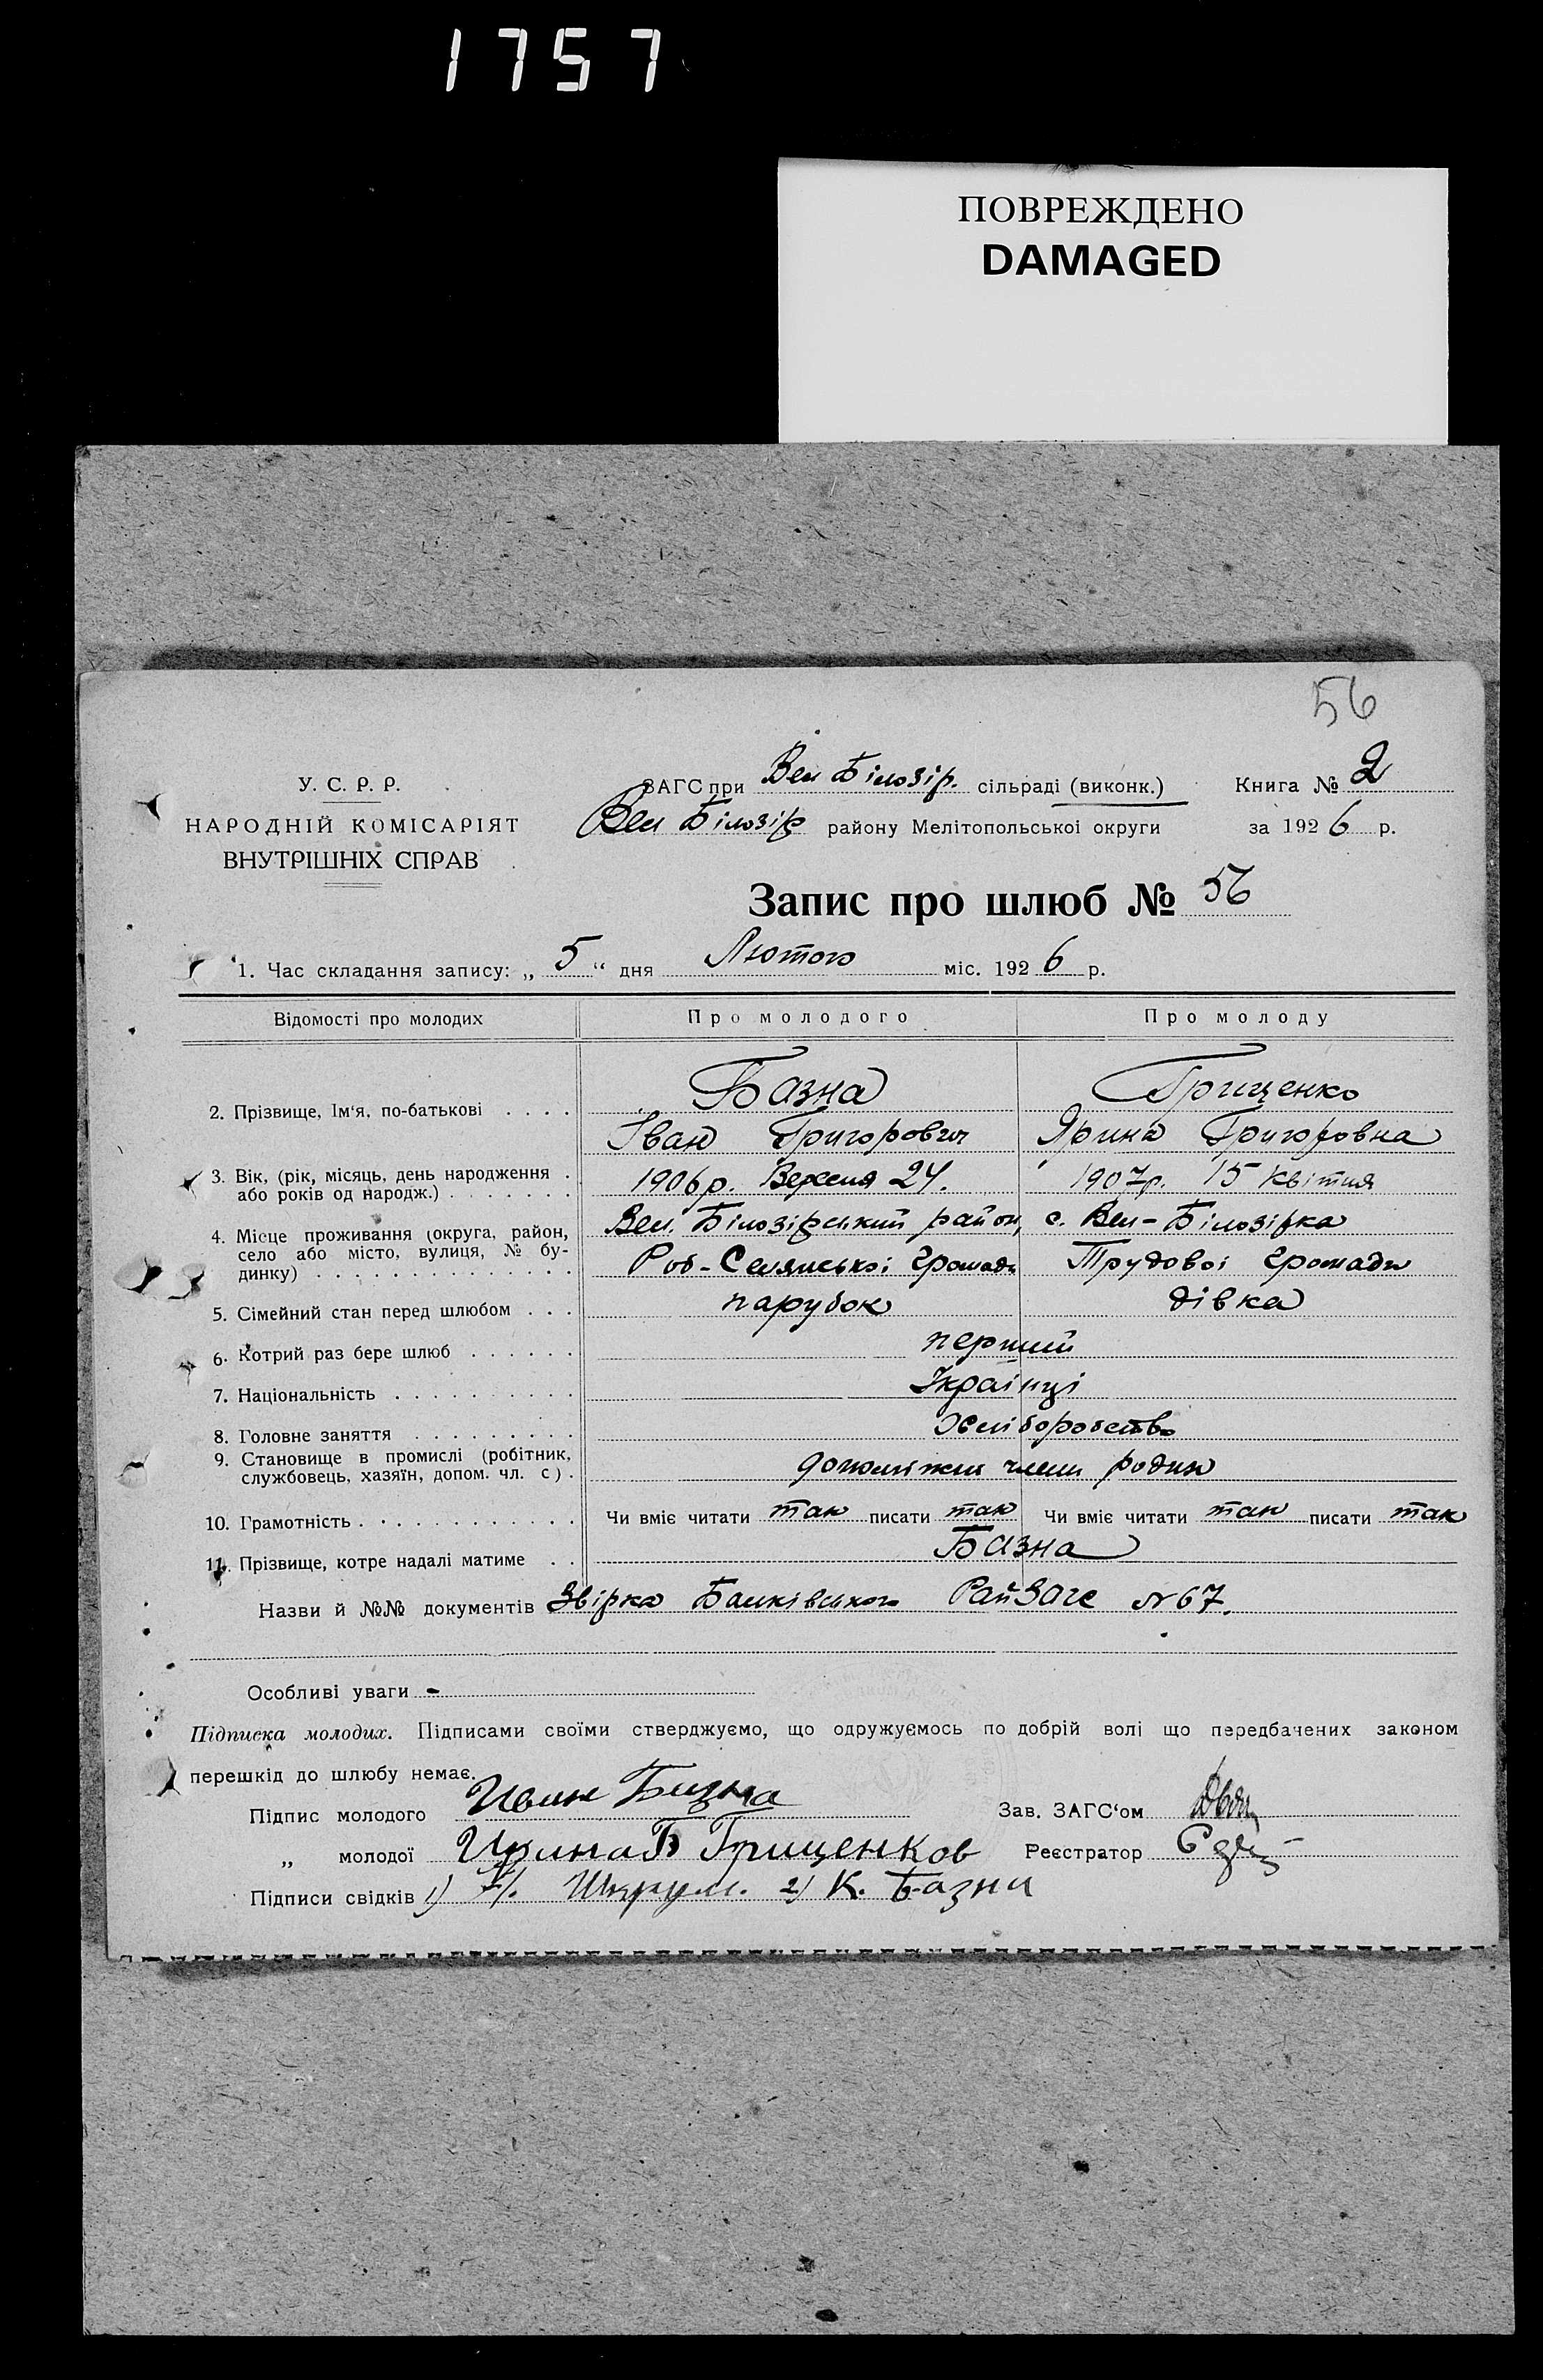 1757
ПОВРЕЖДЕНО
DAMAGED
56
У. С. Р. Р.
НАРОДНІЙ КОМІСАРІЯТ
ВНУТРІШНІХ СПРАВ
ЗАГС при Вел Білозір. сільраді (виконк.) Книга № 2
Вел Білозір району Мелітопольськоі округи за 1926 р.
Запис про шлюб № 56
1. Час складання запису: „ 5 “ дня Лютого міс. 1926 р.
Відомості про молодих Про молодого Про молоду
Базна Грищенко
2. Прізвище, Ім'я, по-батькові . . . .
Іван Григорович Ярина Григоровна
3. Вік, (рік, місяць, день народження . 1906р. Вересня 24. 1907р. 15 Квітня
або років од народж.) . . . . . . .
4. Місце проживання (округа, район, Вел. Білозірський район, с. Вел-Білозірка
село або місто, вулиця, № бу-
динку) . . . . . . . . . . . . . . Роб-Селянської Громади Трудовоі Громади
5. Сімейний стан перед шлюбом . . . парубок дівка
6. Котрий раз бере шлюб . . . . . . перший
7. Національність . . . . . . . . . . Українці
8. Головне заняття . . . . . . . . . Хліборобство
9. Становище в промислі (робітник,
службовець, хазяїн, допом. чл. с) . допоміжні члени родин
10. Грамотність . . . . . . . . . . . . Чи вміє читати так писати так Чи вміє читати так писати так
11. Прізвище, котре надалі матиме . . Базна
Назви й №№ документів Звірка Балківського РайЗагс №67.
Особливі уваги -
Підписка молодих. Підписами своїми стверджуємо, що одружуємось по добрій волі що передбачених законом
перешкід до шлюбу немає.
Підпис молодого Иван Базна Зав. ЗАГС'ом
„ молодої Ирина Б Грищенков Реєстратор
Підписи свідків 1) 2) К. Базна